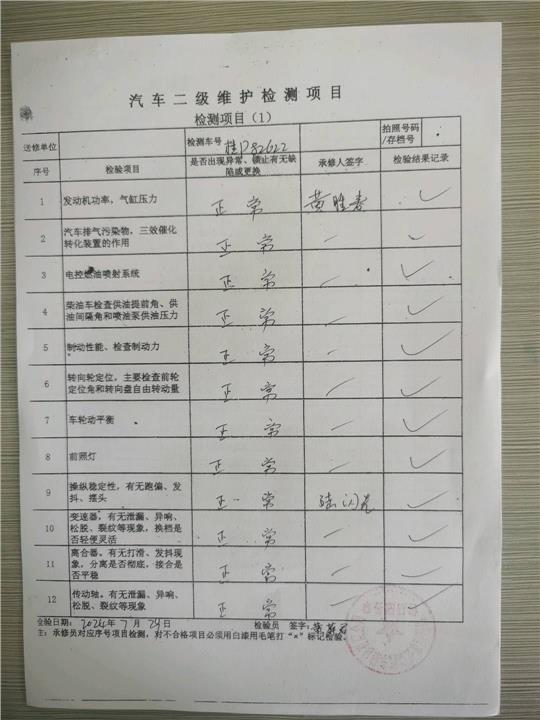 汽车二级维护检测项目
检测项目（1）
送修单位 检测车号 桂P82622 拍照号码/存档号
序号 检验项目 是否出现异常、锁止有无缺陷或更换 承修人签字 检验结果记录
1 发动机功率，气缸压力 正常 ✓
2 汽车排气污染物，三效催化转化装置的作用 正常 — ✓
3 电控燃油喷射系统 正常 — ✓
4 柴油车检查供油提前角、供油间隔角和喷油泵供油压力 正常 — ✓
5 制动性能、检查制动力 正常 — ✓
6 转向轮定位，主要检查前轮定位角和转向盘自由转动量 正常 — ✓
7 车轮动平衡 正常 — ✓
8 前照灯 正常 — ✓
9 操纵稳定性，有无跑偏、发抖、摆头 正常 ✓
10 变速器，有无泄漏、异响、松脱、裂纹等现象，换档是否轻便灵活 正常 — ✓
11 离合器。有无打滑、发抖现象，分离是否彻底，接合是否平稳 正常 — ✓
12 传动轴。有无泄漏、异响、松脱、裂纹等现象 正常 — ✓
验日期： 2024年7月24日 检验员 签字:
主：承修员对应序号项目检测，对不合格项目必须用白漆用毛笔打“×”标记检验